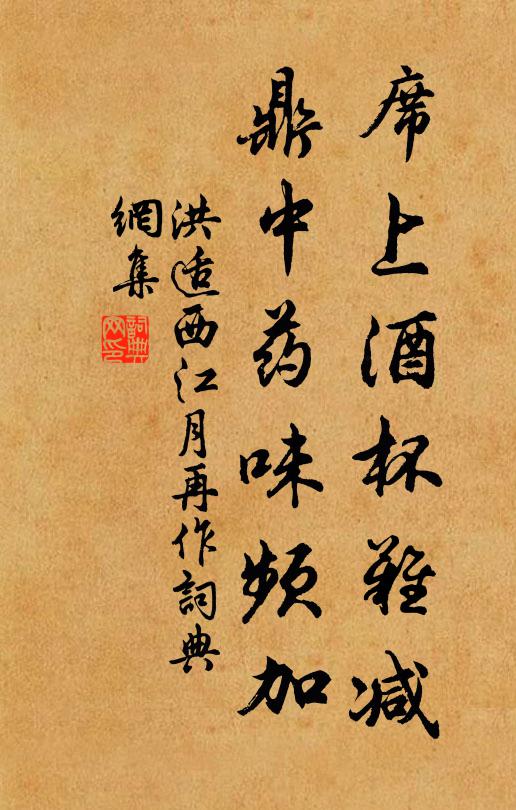 席上酒杯難减
鼎中药味频加
洪适西江月再作詞典
網集
詞典网印